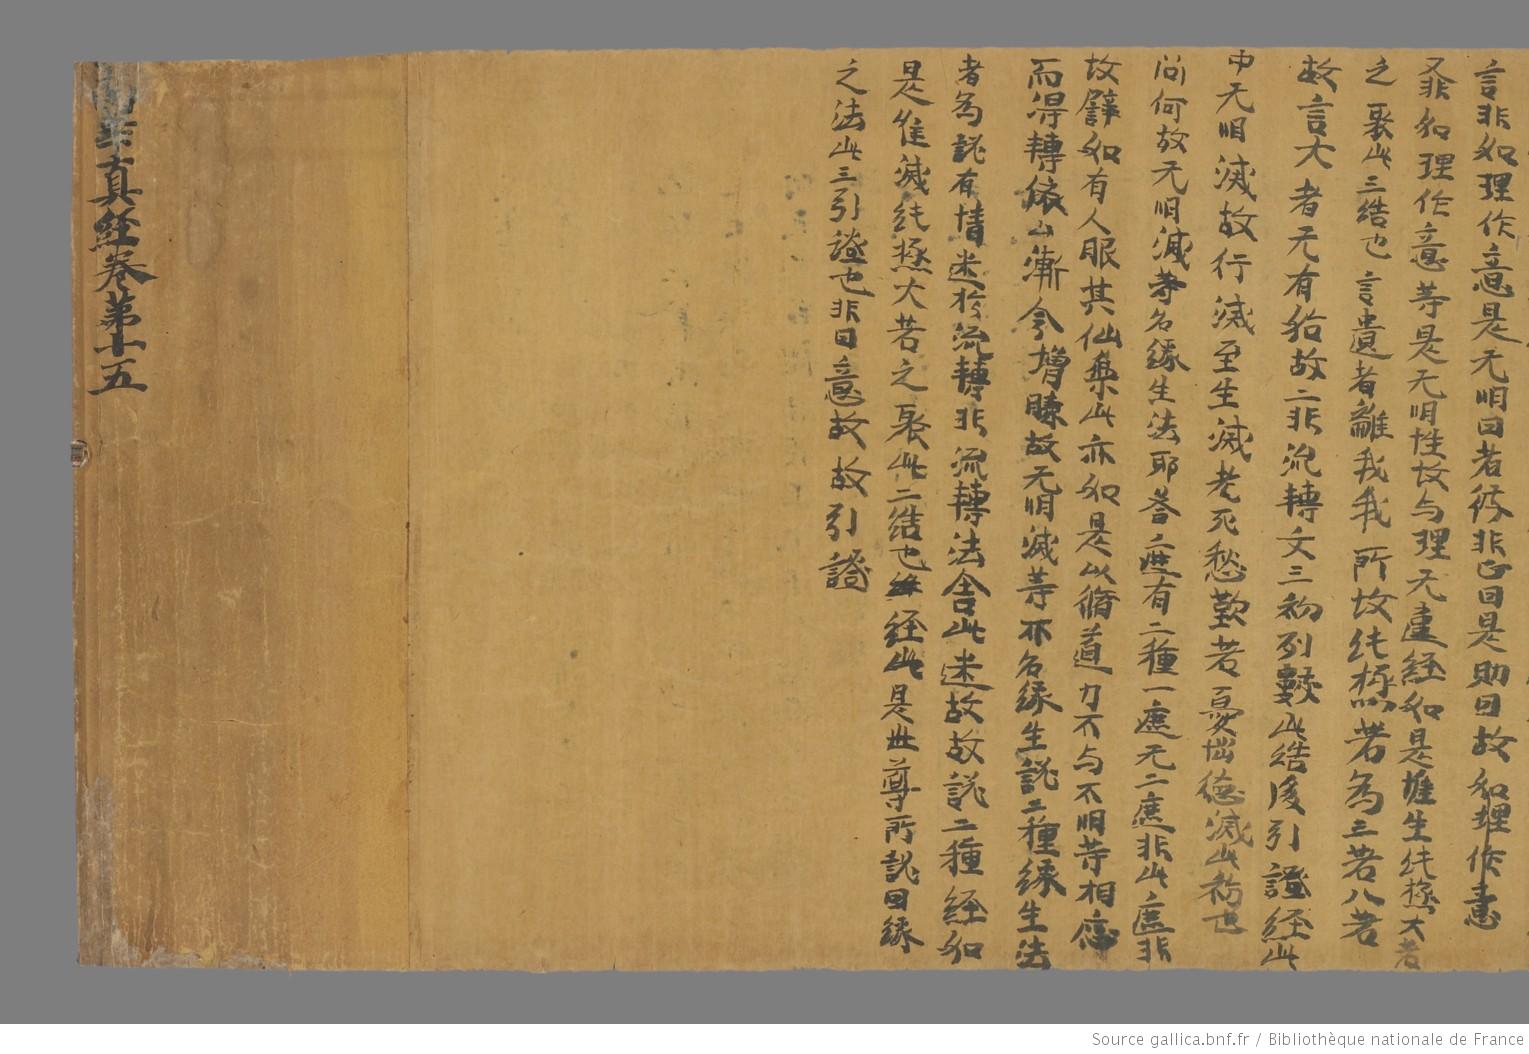 言非如理作意是无明因者彼非正因是助因故如理作意
又非如理作意等是无明性故与理无違經如是堆生純極大者
之聚此三結也言遣者離我我所故純極以苦為三苦八苦
故言大者无有始故二非流轉文三初列數此結後引證經此
中无明滅故行滅至生滅老死愁歎苦憂惱德滅此初也
問何故无明滅等名緣生法耶荅二處有二種一處无二處非此二處非
故譬如有人服其仙藥此亦如是以脩道力不与不明等相應
而得轉依以漸令增勝故无明滅等亦名緣生說二種緣生法
者為說有情迷於流轉非流轉法舍此迷故故說二種經如
是唯滅純極大苦之聚此二結也經此是世尊所說因緣
之法此三引證也非因意故故引證
南華真經卷第十五
Source gallica.bnf.fr / Bibliothèque nationale de France